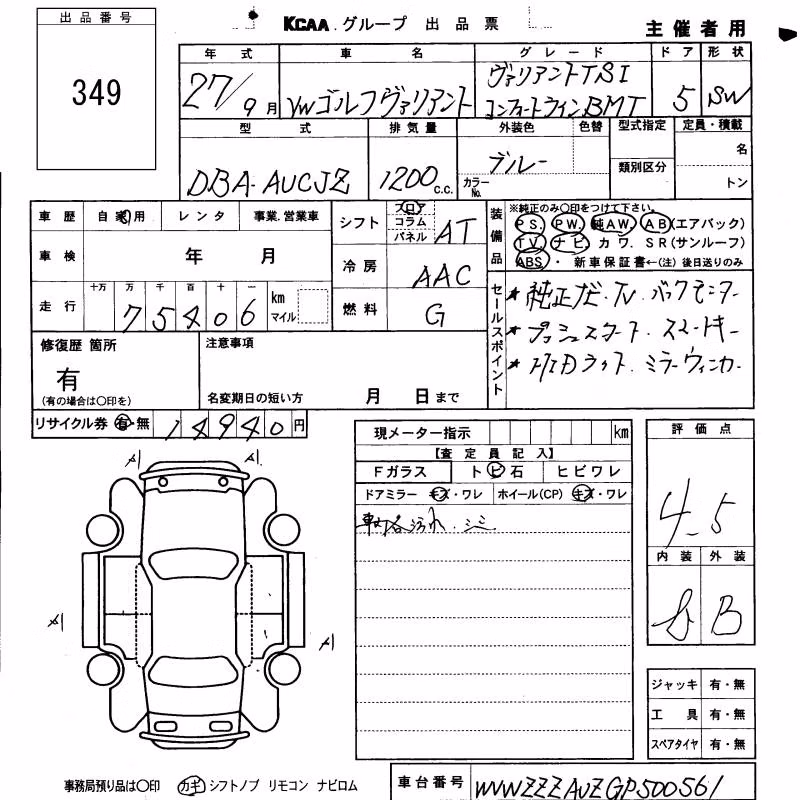 出品番号
349
KCAA グループ 出品票
主催者用
年式 車名 グレード ドア 形状
27/9月 VWゴルフヴァリアント ヴァリアントTSI
コンフォートラインBMT 5 SW
型式 排気量 外装色 色替 型式指定 定員・積載
DBA-AUCJZ 1200c.c. ブルー カラーNo. 類別区分 名
トン
車歴 自家用 レンタ 事業.営業車
シフト フロア コラム パネル AT
装備品 ※純正のみ〇印をつけて下さい。
P S. P W. 純A W. A B(エアバック)
T V. ナ ビ. カ ワ. S R(サンルーフ)
ABS ・ 新車保証書←(注) 後日送りのみ
車検 年 月
冷房 AAC
走行 十万 万 千 百 十 一
75406 km マイル
燃料 G
セールスポイント
★純正ナビ.TV.バックモニター
★プッシュスタート.スマートキー
★HIDライト.ミラーウィンカー
修復歴 箇所
有
(有の場合は〇印を)
注意事項
名変期日の短い方 月 日まで
リサイクル券 有・無 14940円
現メーター指示 km
【査定員記入】
Fガラス トビ石 ヒビワレ
ドアミラー キズ・ワレ ホイール(CP) キズ・ワレ
シミ
評価点
4.5
内装 外装
B
A1 A1
A1 A1
ジャッキ 有・無
工具 有・無
スペアタイヤ 有・無
事務局預り品は〇印 カギ シフトノブ リモコン ナビロム
車台番号 WVWZZZAUZGP500561